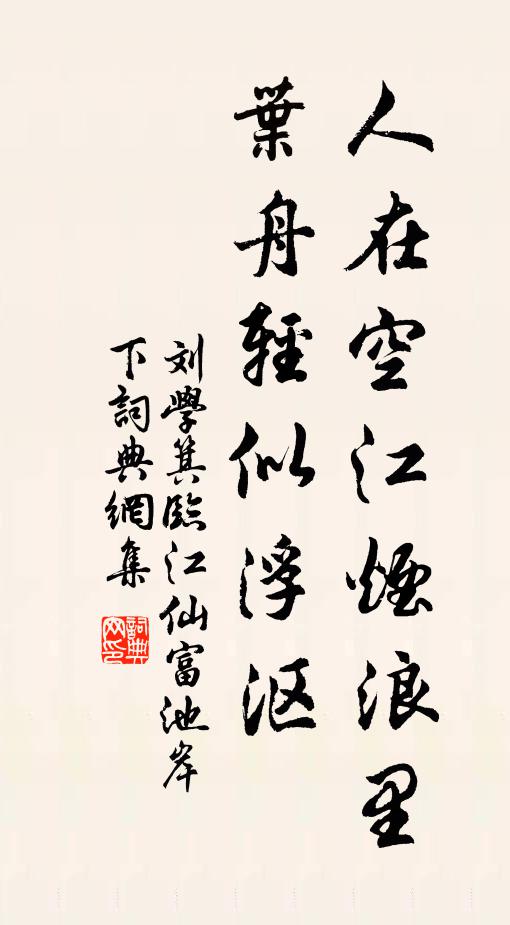 人在空江煙浪里
葉舟輕似浮沤
刘學箕臨江仙富池岸
下詞典網集
詞典网印